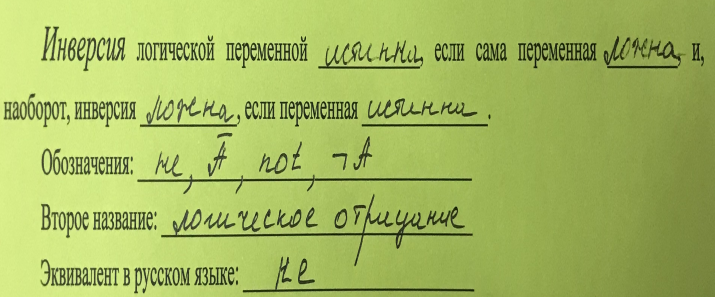 Инверсия логической переменной истинна, если сама переменная ложна, и,
наоборот, инверсия ложна, если переменная истинна.
Обозначения: не, Ā, not, ¬A
Второе название: логическое отрицание
Эквивалент в русском языке: не